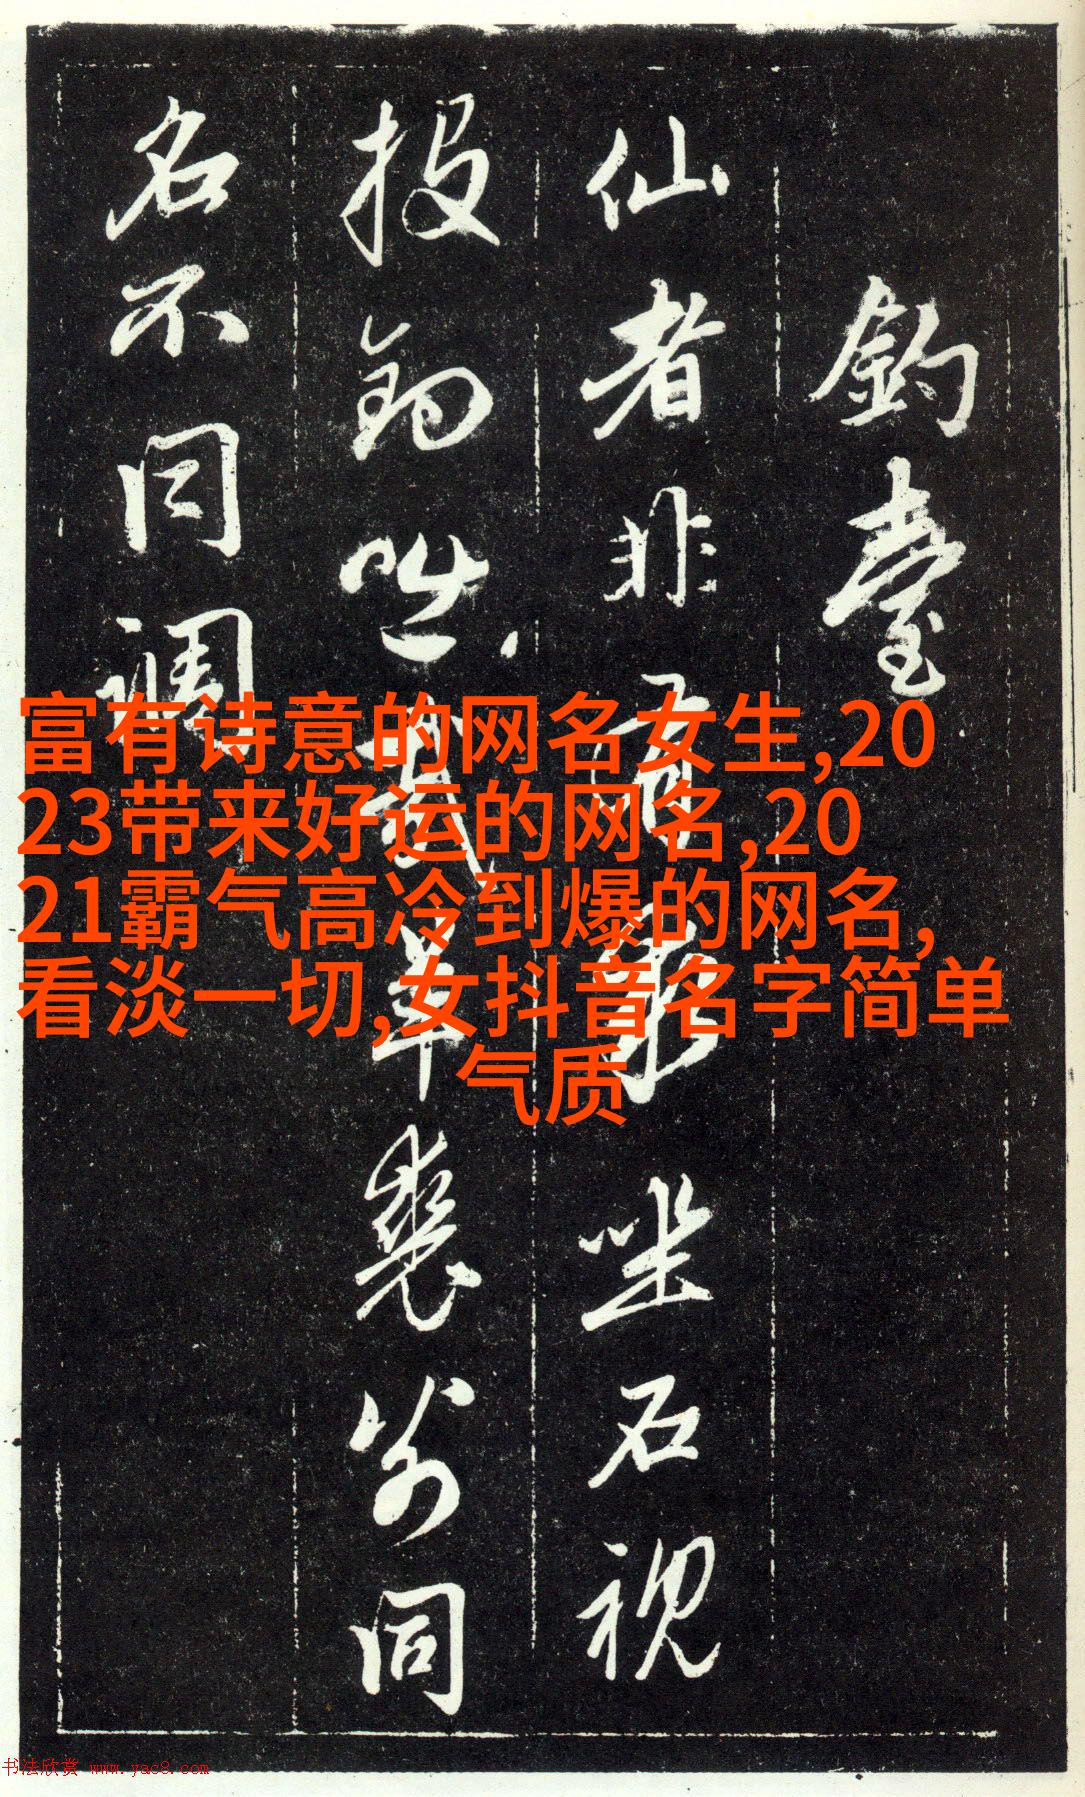 釣臺
仙者非坐石視
投鉤咄哉羊裘翁同
名不同調
富有诗意的网名女生,20
23带来好运的网名,20
21霸气高冷到爆的网名,
看淡一切,女抖音名字简单
气质
书法欣赏 www.yac8.com